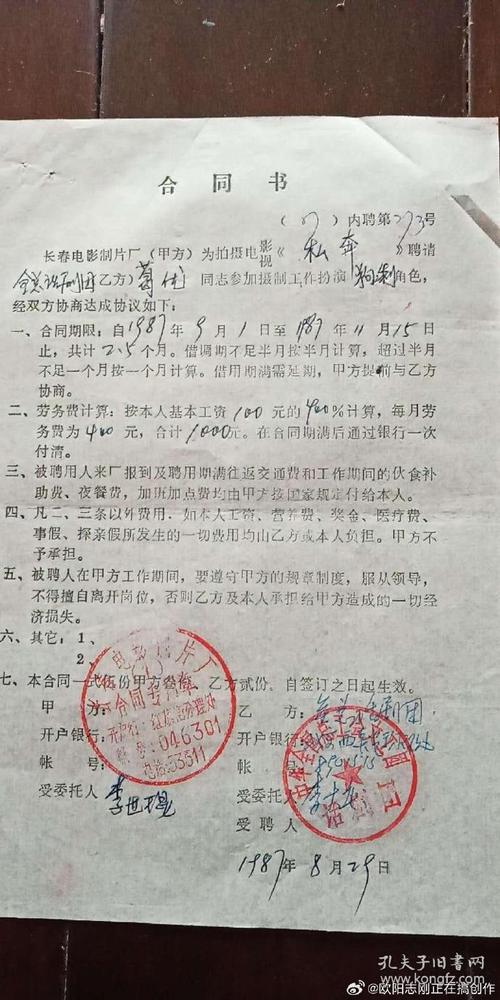 合同书
(87)内聘第273号
长春电影制片厂(甲方)为拍摄电影视《私奔》聘请
全总话剧团(乙方)葛优同志参加摄制工作扮演狗剩角色,
经双方协商达成协议如下:
一、合同期限:自1987年9月1日至1987年11月15日
止,共计2.5个月。借调期不足半月按半月计算,超过半月
不足一个月按一个月计算。借用期满需延期,甲方提前与乙方
协商。
二、劳务费计算:按本人基本工资100元的400%计算,每月劳
务费为400元,合计1000元。在合同期满后通过银行一次
付清。
三、被聘用人来厂报到及聘用期满往返交通费和工作期间的伙食补
助费、夜餐费,加班加点费均由甲方按国家规定付给本人。
四、凡二、三条以外费用.如本人工资、营养费、奖金、医疗费、
事假、探亲假所发生的一切费用均由乙方或本人负担。甲方不
予承担。
五、被聘人在甲方工作期间,要遵守甲方的规章制度,服从领导,
不得擅自离开岗位,否则乙方及本人承担给甲方造成的一切经
济损失。
六、其它:1、
2、
七、本合同一式伍份甲方叁份,乙方贰份,自签订之日起生效。
甲方:
开户银行:
帐号:
受委托人
电影制片厂
合同专用章
开户行:红旗街办理处
帐号:046301
电话:53311
乙方:全总话剧团
开户银行:
帐号:
受委托人
受聘人
话剧团
1987年8月29日
孔夫子旧书网
kongfz.com
@欧阳志刚正在搞创作